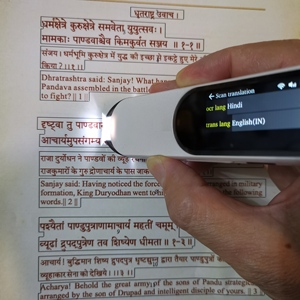 धृतराष्ट्र उवाच ।
धर्मक्षेत्रे कुरुक्षेत्रे समवेता युयुत्सवः ।
मामकाः पाण्डवाश्चैव किमकुर्वत सञ्जय ॥ १-१ ॥
संजय! धर्मभूमि कुरुक्षेत्र में युद्ध की इच्छा से इकट्ठे हुए मेरे
किया? । १ ।
Dhratrashtra said: Sanjay! What
Pandava assembled in the
to fight? || 1 ||
← Scan translation
ocr lang Hindi
trans lang English(IN)
दृष्ट्वा तु
आचार्यमुपसंगम्य
राजा दुर्योधन ने पाण्डवों की
राजकुमारों के गुरु द्रोणाचार्य के पास
Sanjay said: Having noticed the in military
formation, King Duryodhan went to
words. || 2 ||
पश्यैतां पाण्डुपुत्राणामाचार्य महतीं चमूम् ।
व्यूढां द्रुपदपुत्रेण तव शिष्येण धीमता ॥ १-३ ॥
आचार्य! बुद्धिमान शिष्य द्रुपदपुत्र धृष्टद्युम्न द्वारा
व्यूहाकार सेना को देखिये । ३ ।
Acharya! Behold the great army of the sons of Pandu
arranged by the son of Drupad and intelligent disciple of yours. || 3 ||